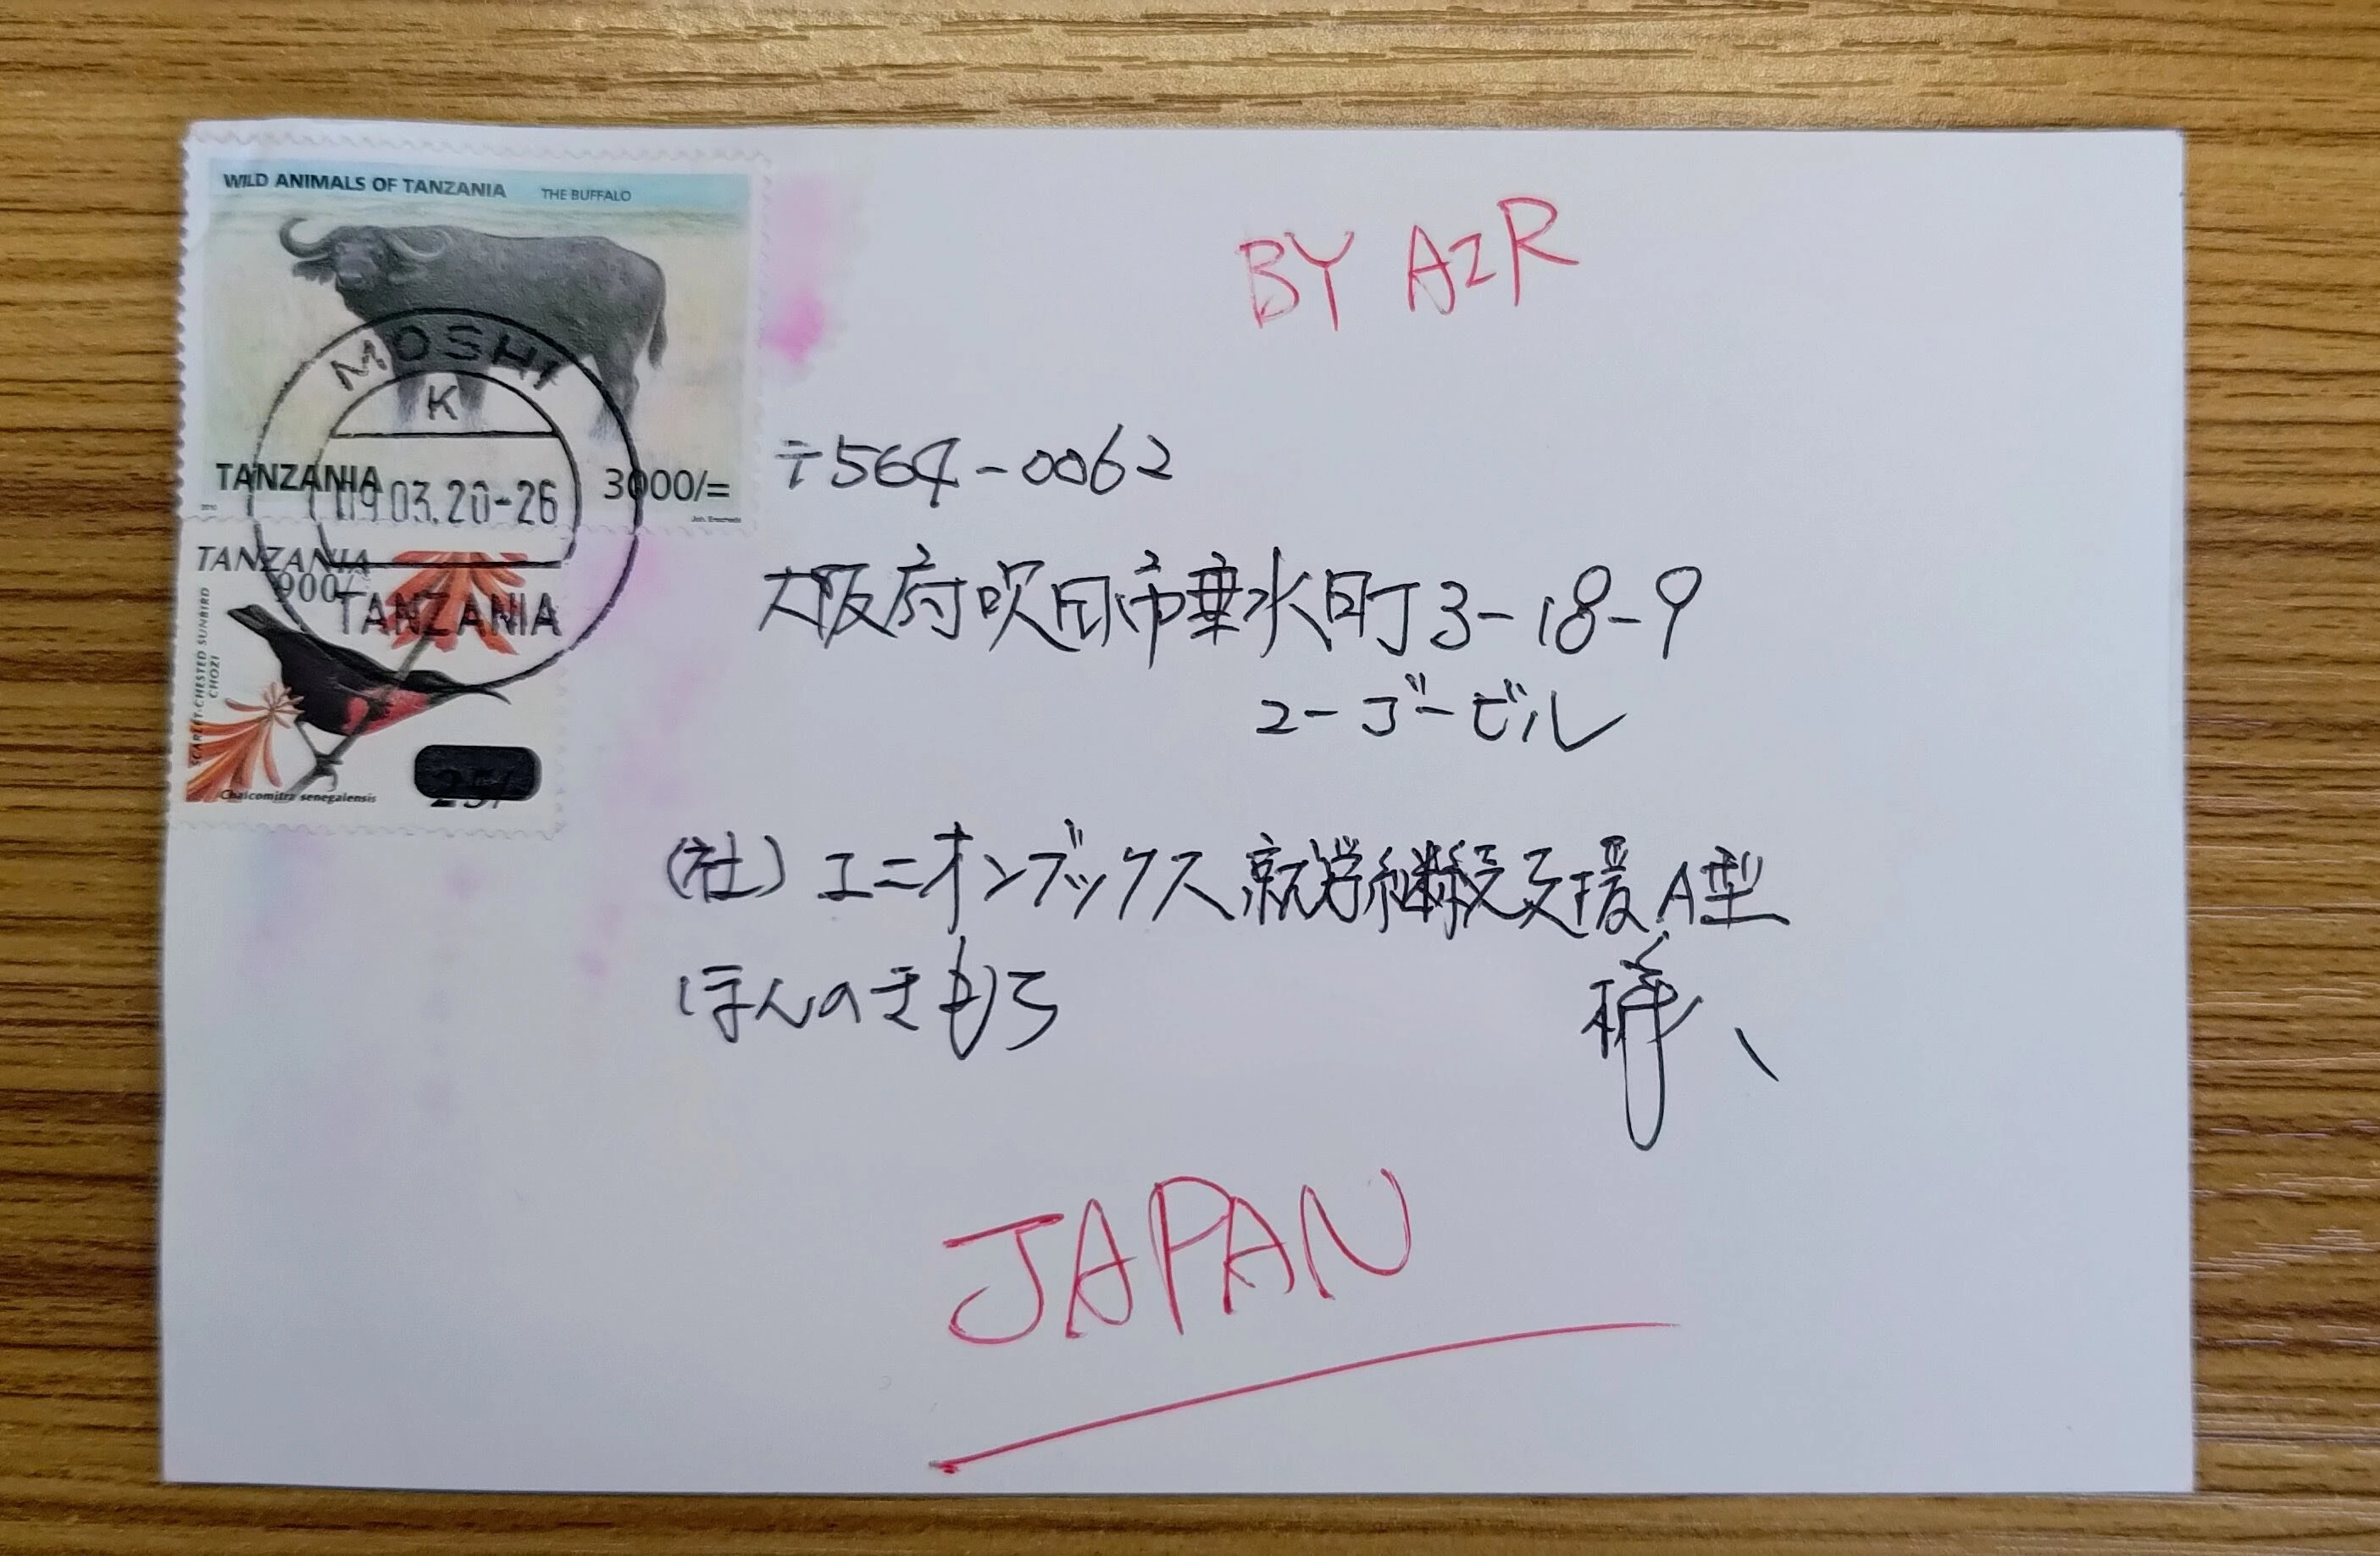 WILD ANIMALS OF TANZANIA THE BUFFALO
MOSHI
K
TANZANIA
3000/=
09.03.20-26
TANZANIA
900/-
TANZANIA
SCARLET-CHESTED SUNBIRD
CHOZI
25/-
Chalcomitra senegalensis
BY AIR
〒564-0062
大阪府吹田市垂水町3-18-9
ユーゴービル
(社)ユニオンブックス就労継続支援A型
ほんのきもち 様、
JAPAN